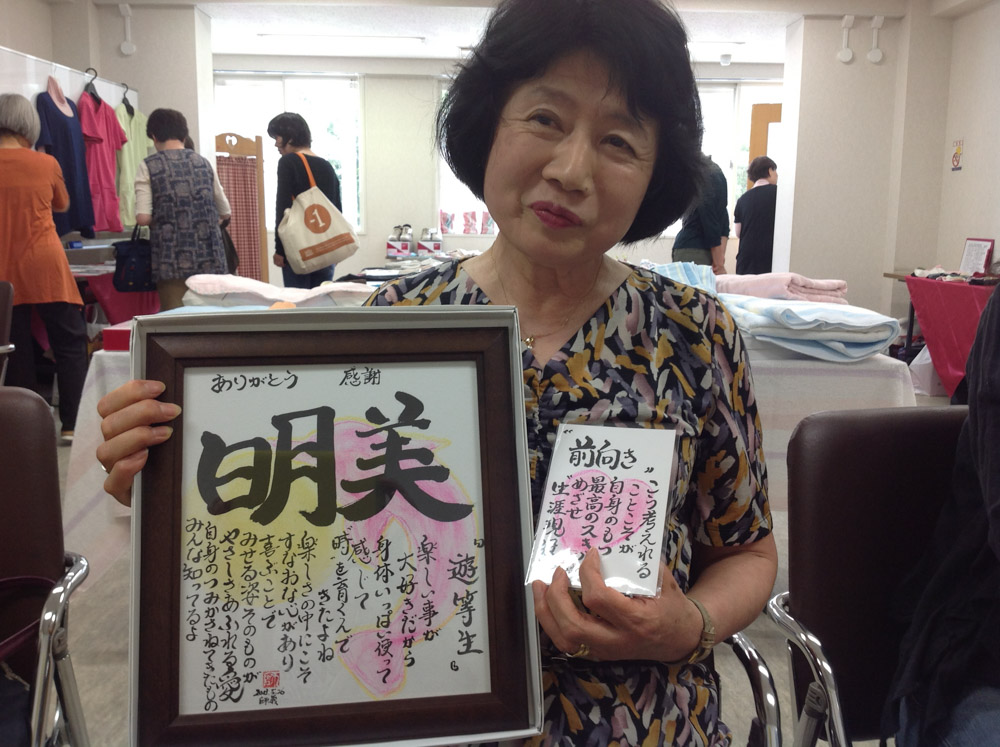 ありがとう 感謝
明美
『遊等生』
楽しい事が
大好きだから
身体いっぱい使って
感じて
時を育くんで
きたよね
楽しさの中にこそ
すなおな心があり
喜ぶことで
みせる姿そのものが
やさしさあふれる愛
自身のつみかさねてきたもの
みんな知ってるよ
"前向き"
こう考えれる
ことこそが
自身のもつ
最高のスキ
めざせ
"生涯現